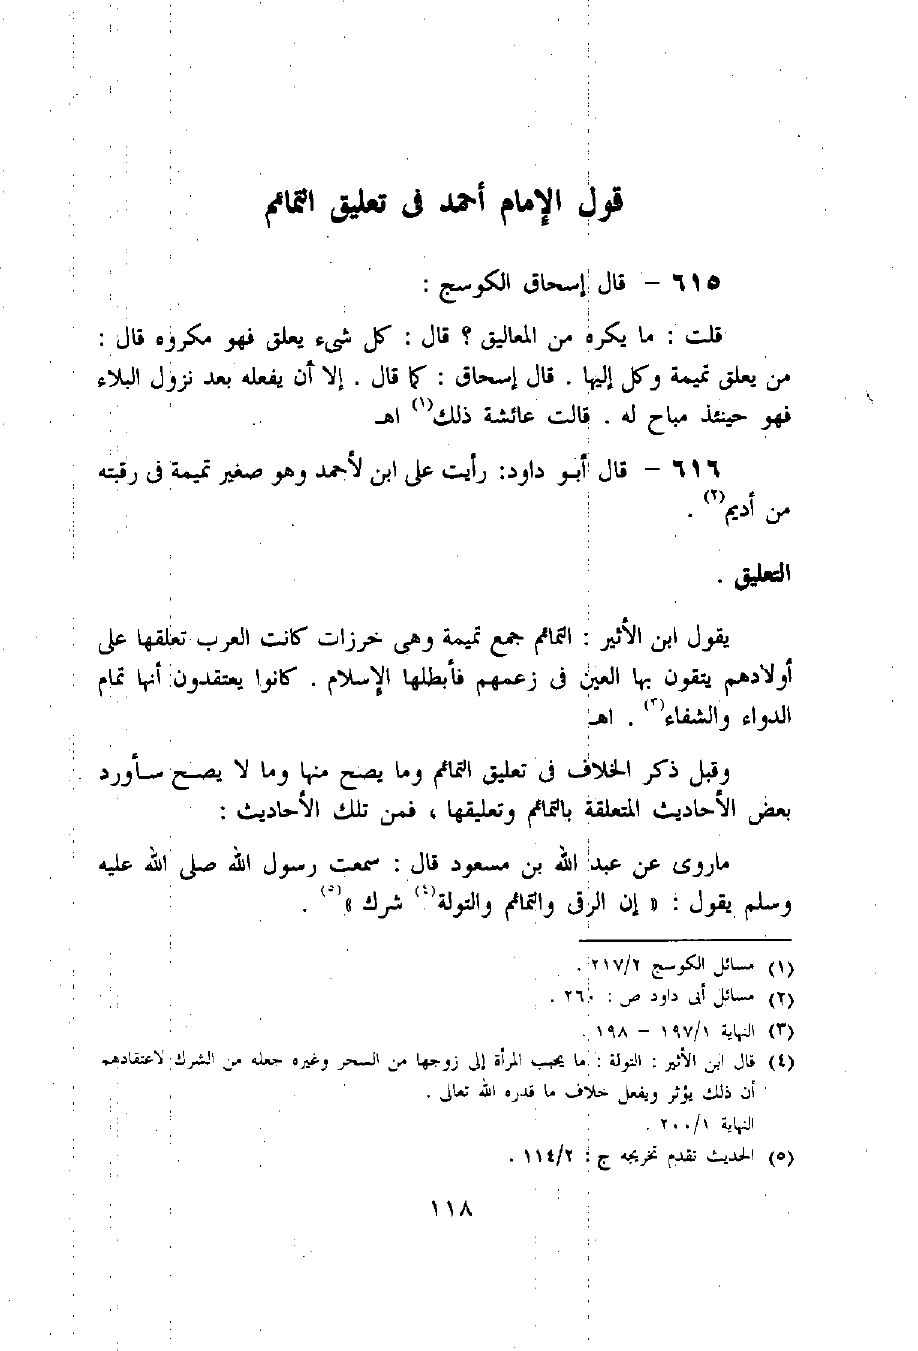 قول الإمام أحمد فى تعليق التمائم
٦١٥ – قال إسحاق الكوسج :
قلت : ما يكره من المعاليق ؟ قال : كل شىء يعلق فهو مكروه قال :
من يعلق تميمة وكل إليها . قال إسحاق : كما قال . إلا أن يفعله بعد نزول البلاء
فهو حينئذ مباح له . قالت عائشة ذلك(١) اهـ
٦١٦ – قال أبـو داود: رأيت على ابن لأحمد وهو صغير تميمة فى رقبته
من أديم(٢) .
التعليق .
يقول ابن الأثير : التمائم جمع تميمة وهى خرزات كانت العرب تعلقها على
أولادهم يتقون بها العين فى زعمهم فأبطلها الإسلام . كانوا يعتقدون أنها تمام
الدواء والشفاء(٣) . اهـ
وقبل ذكر الخلاف فى تعليق التمائم وما يصح منها وما لا يصـح سـأورد
بعض الأحاديث المتعلقة بالتمائم وتعليقها ، فمن تلك الأحاديث :
ماروى عن عبد الله بن مسعود قال : سمعت رسول الله صلى الله عليه
وسلم يقول : « إن الرقى والتمائم والتولة(٤) شرك »(٥) .
(١) مسائل الكوسج ٢١٧/٢ .
(٢) مسائل أبى داود ص : ٢٦٠ .
(٣) النهاية ١٩٧/١ – ١٩٨ .
(٤) قال ابن الأثير : التولة : ما يحبب المرأة إلى زوجها من السحر وغيره جعله من الشرك لاعتقادهم
أن ذلك يؤثر ويفعل خلاف ما قدره الله تعالى .
النهاية ٢٠٠/١ .
(٥) الحديث تقدم تخريجه ج : ١١٤/٢ .
١١٨